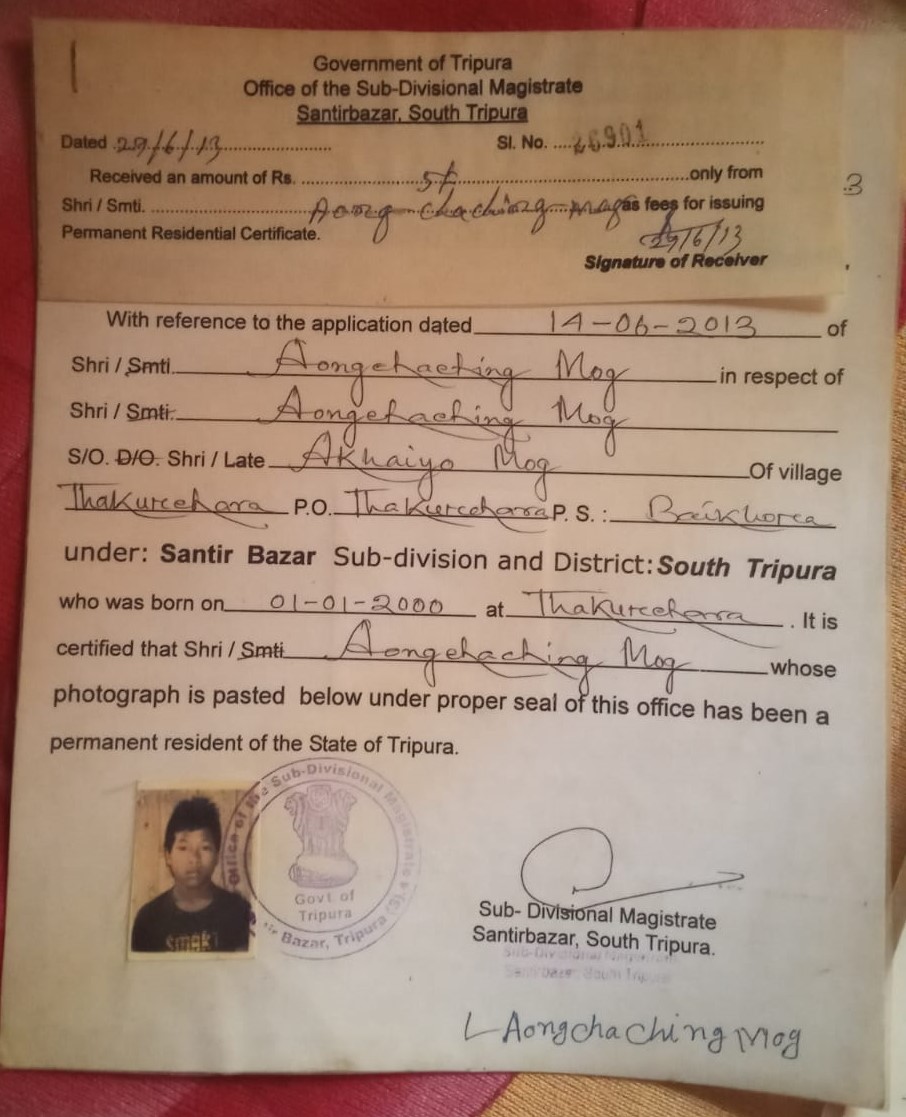 Government of Tripura
Office of the Sub-Divisional Magistrate
Santirbazar, South Tripura
Dated 29/6/13 Sl. No. 26901
Received an amount of Rs. 5/- only from
Shri / Smti. Aong chaching mag as fees for issuing
Permanent Residential Certificate.
29/6/13
Signature of Receiver
3
With reference to the application dated 14-06-2013 of
Shri / Smti. Aongchaching Mog in respect of
Shri / Smti. Aongchaching Mog
S/O. D/O. Shri / Late Akhaiyo Mog Of village
Thakurcchara P.O. Thakurcchara P. S. : Baikhora
under: Santir Bazar Sub-division and District: South Tripura
who was born on 01-01-2000 at Thakurcchara . It is
certified that Shri / Smti Aongchaching Mog whose
photograph is pasted below under proper seal of this office has been a
permanent resident of the State of Tripura.
Office of the Sub-Divisional Magistrate
Govt of
Tripura
Bazar, Tripura (S)
Sub- Divisional Magistrate
Santirbazar, South Tripura.
Sub-Divisional Magistrate
Santirbazar South Tripura
L Aongchaching Mog